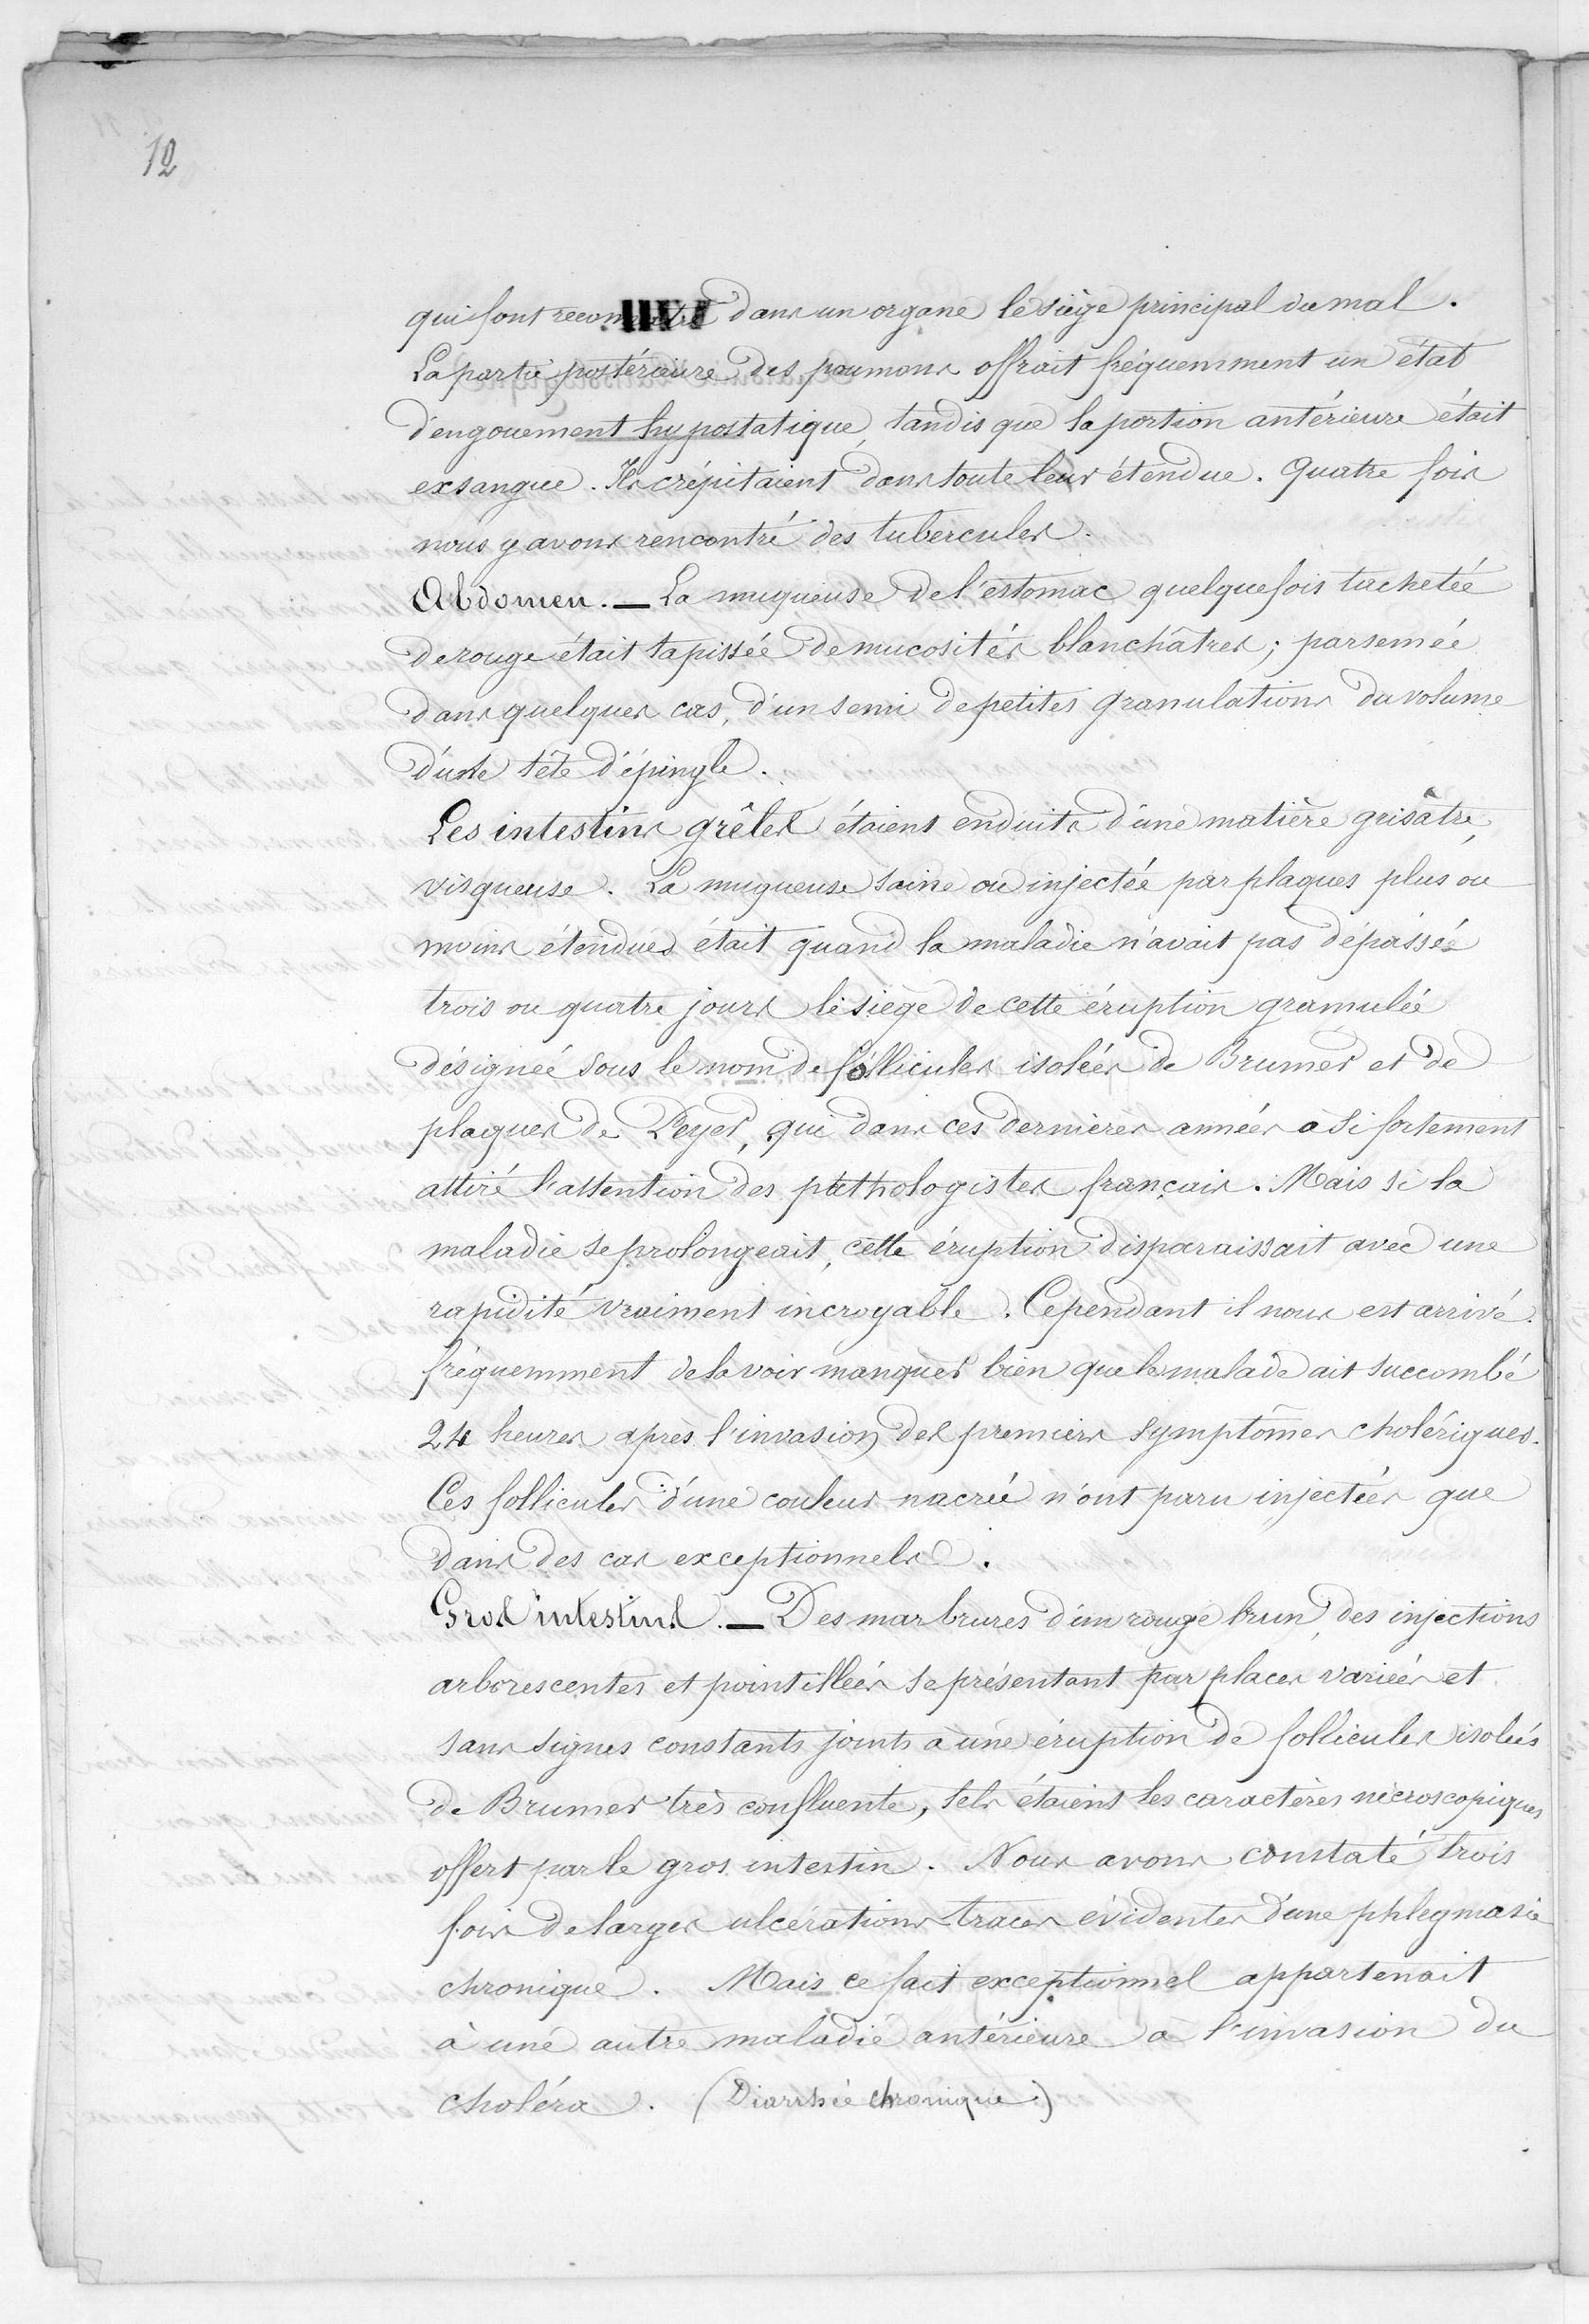 12
qui font reconnaitre dans un organe le siège principal du mal.
La partie postérieure des poumons offrait fréquemment un état
d'engouement hypostatique, tandis que la portion antérieure était
exsangue. Ils crépitaient dans toute leur étendue. Quatre fois
nous y avons rencontré des tubercules.
Abdomen. — La muqueuse de l'estomac quelquefois tachetée
de rouge était tapissée de mucosités blanchâtres; parsemée
dans quelques cas, d'un semi de petites granulations du volume
d'une tête d'épingle.
Les intestins grêles étaient enduits d'une matière grisâtre,
visqueuse. La muqueuse saine ou injectée par plaques plus ou
moins étendues était quand la maladie n'avait pas dépassée
trois ou quatre jours le siège de cette éruption granulée
désignée sous le nom de follicules isolées de Brumer et de
plaques de Peyer, qui dans ces dernières années a si fortement
attiré l'attention des pathologistes français. Mais si la
maladie se prolongeait, cette éruption disparaissait avec une
rapidité vraiment incroyable. Cependant il nous est arrivé
fréquemment de la voir manquer bien que le malade ait succombé
24 heures après l'invasion des premiers symptômes cholériques.
Ces follicules d'une couleur nacrée n'ont paru injectées que
dans des cas exceptionnels.
Gros intestins. — Des marbrures d'un rouge brun, des injections
arborescentes et pointillées se présentant par places variées et
sans signes constants joints à une éruption de follicules isolées
de Brumer très confluente, tels étaient les caractères nicroscopiques
offert par le gros intestin. Nous avons constaté trois
fois de larges ulcérations traces évidentes d'une phlegmasie
chronique. Mais ce fait exceptionnel appartenait
à une autre maladie antérieure à l'invasion du
choléra. (Diarrhée chronique)